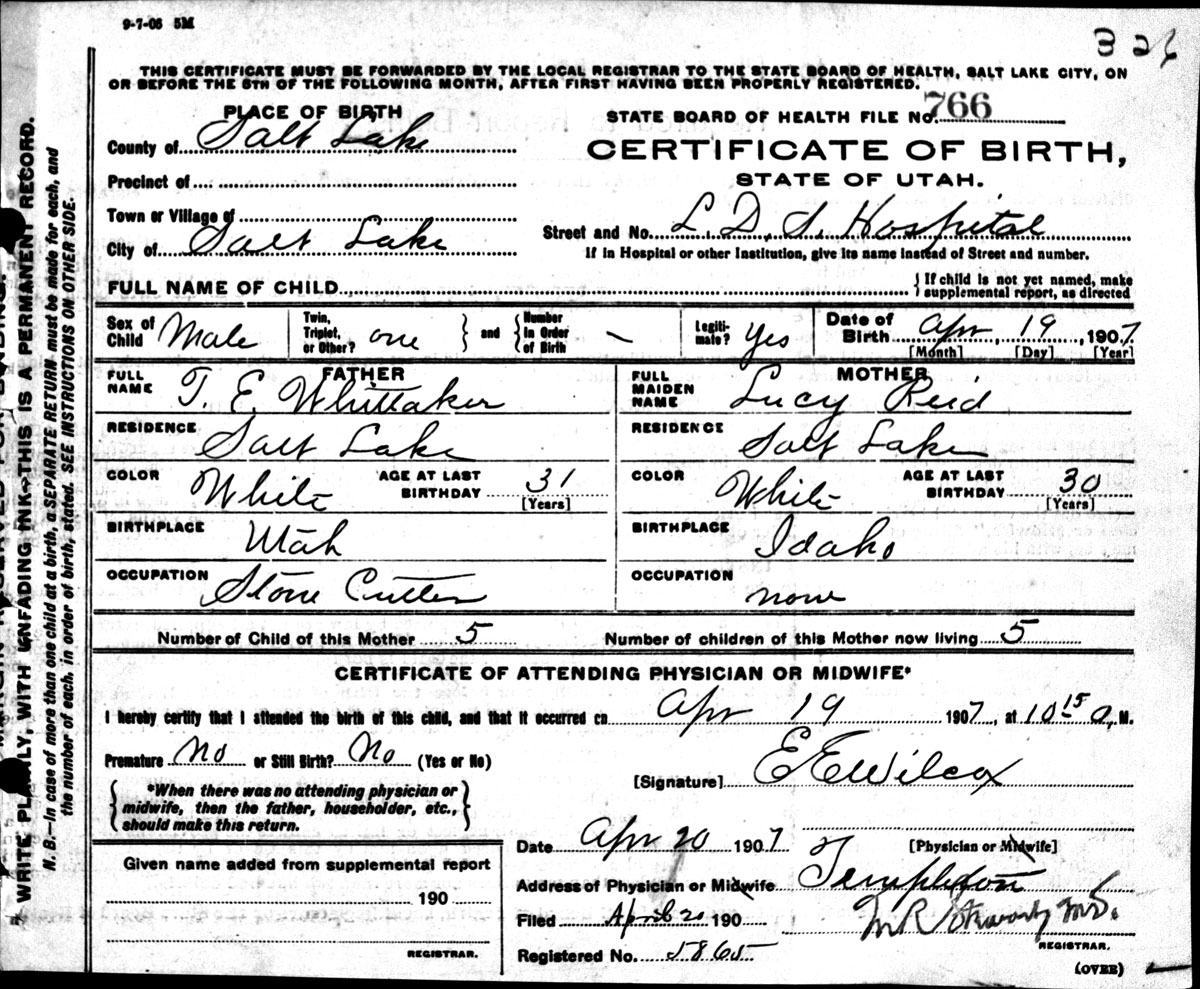 9-7-06 5M
326
THIS CERTIFICATE MUST BE FORWARDED BY THE LOCAL REGISTRAR TO THE STATE BOARD OF HEALTH, SALT LAKE CITY, ON
OR BEFORE THE 5TH OF THE FOLLOWING MONTH, AFTER FIRST HAVING BEEN PROPERLY REGISTERED.
PLACE OF BIRTH
County of Salt Lake
Precinct of
Town or Village of
City of Salt Lake
STATE BOARD OF HEALTH FILE No. 766
CERTIFICATE OF BIRTH,
STATE OF UTAH.
Street and No. L. D. S. Hospital
If in Hospital or other Institution, give its name instead of Street and number.
FULL NAME OF CHILD { If child is not yet named, make
supplemental report, as directed
Sex of Child Male
Twin, Triplet, or Other? one } and { Number in Order of Birth –
Legiti-mate? Yes
Date of Birth Apr, 19, 1907
[Month] [Day] [Year]
FATHER
FULL NAME T. E. Whittaker
RESIDENCE Salt Lake
COLOR White AGE AT LAST BIRTHDAY 31 [Years]
BIRTHPLACE Utah
OCCUPATION Stone Cutter
MOTHER
FULL MAIDEN NAME Lucy Reid
RESIDENCE Salt Lake
COLOR White AGE AT LAST BIRTHDAY 30 [Years]
BIRTHPLACE Idaho
OCCUPATION none
Number of Child of this Mother 5 Number of children of this Mother now living 5
CERTIFICATE OF ATTENDING PHYSICIAN OR MIDWIFE*
I hereby certify that I attended the birth of this child, and that it occurred on Apr 19 1907, at 10 15 a. M.
Premature No or Still Birth? No (Yes or No)
[Signature] E E Wilcox
{ *When there was no attending physician or
midwife, then the father, householder, etc.,
should make this return. }
Date Apr 20 1907 [Physician or Midwife]
Address of Physician or Midwife Templeton
Filed April 20 190 M.D.
REGISTRAR.
Registered No. 5865
(OVER)
Given name added from supplemental report
190
REGISTRAR.
WRITE PLAINLY, WITH UNFADING INK—THIS IS A PERMANENT RECORD.
N. B.—In case of more than one child at a birth, a SEPARATE RETURN must be made for each, and
the number of each, in order of birth, stated. SEE INSTRUCTIONS ON OTHER SIDE.